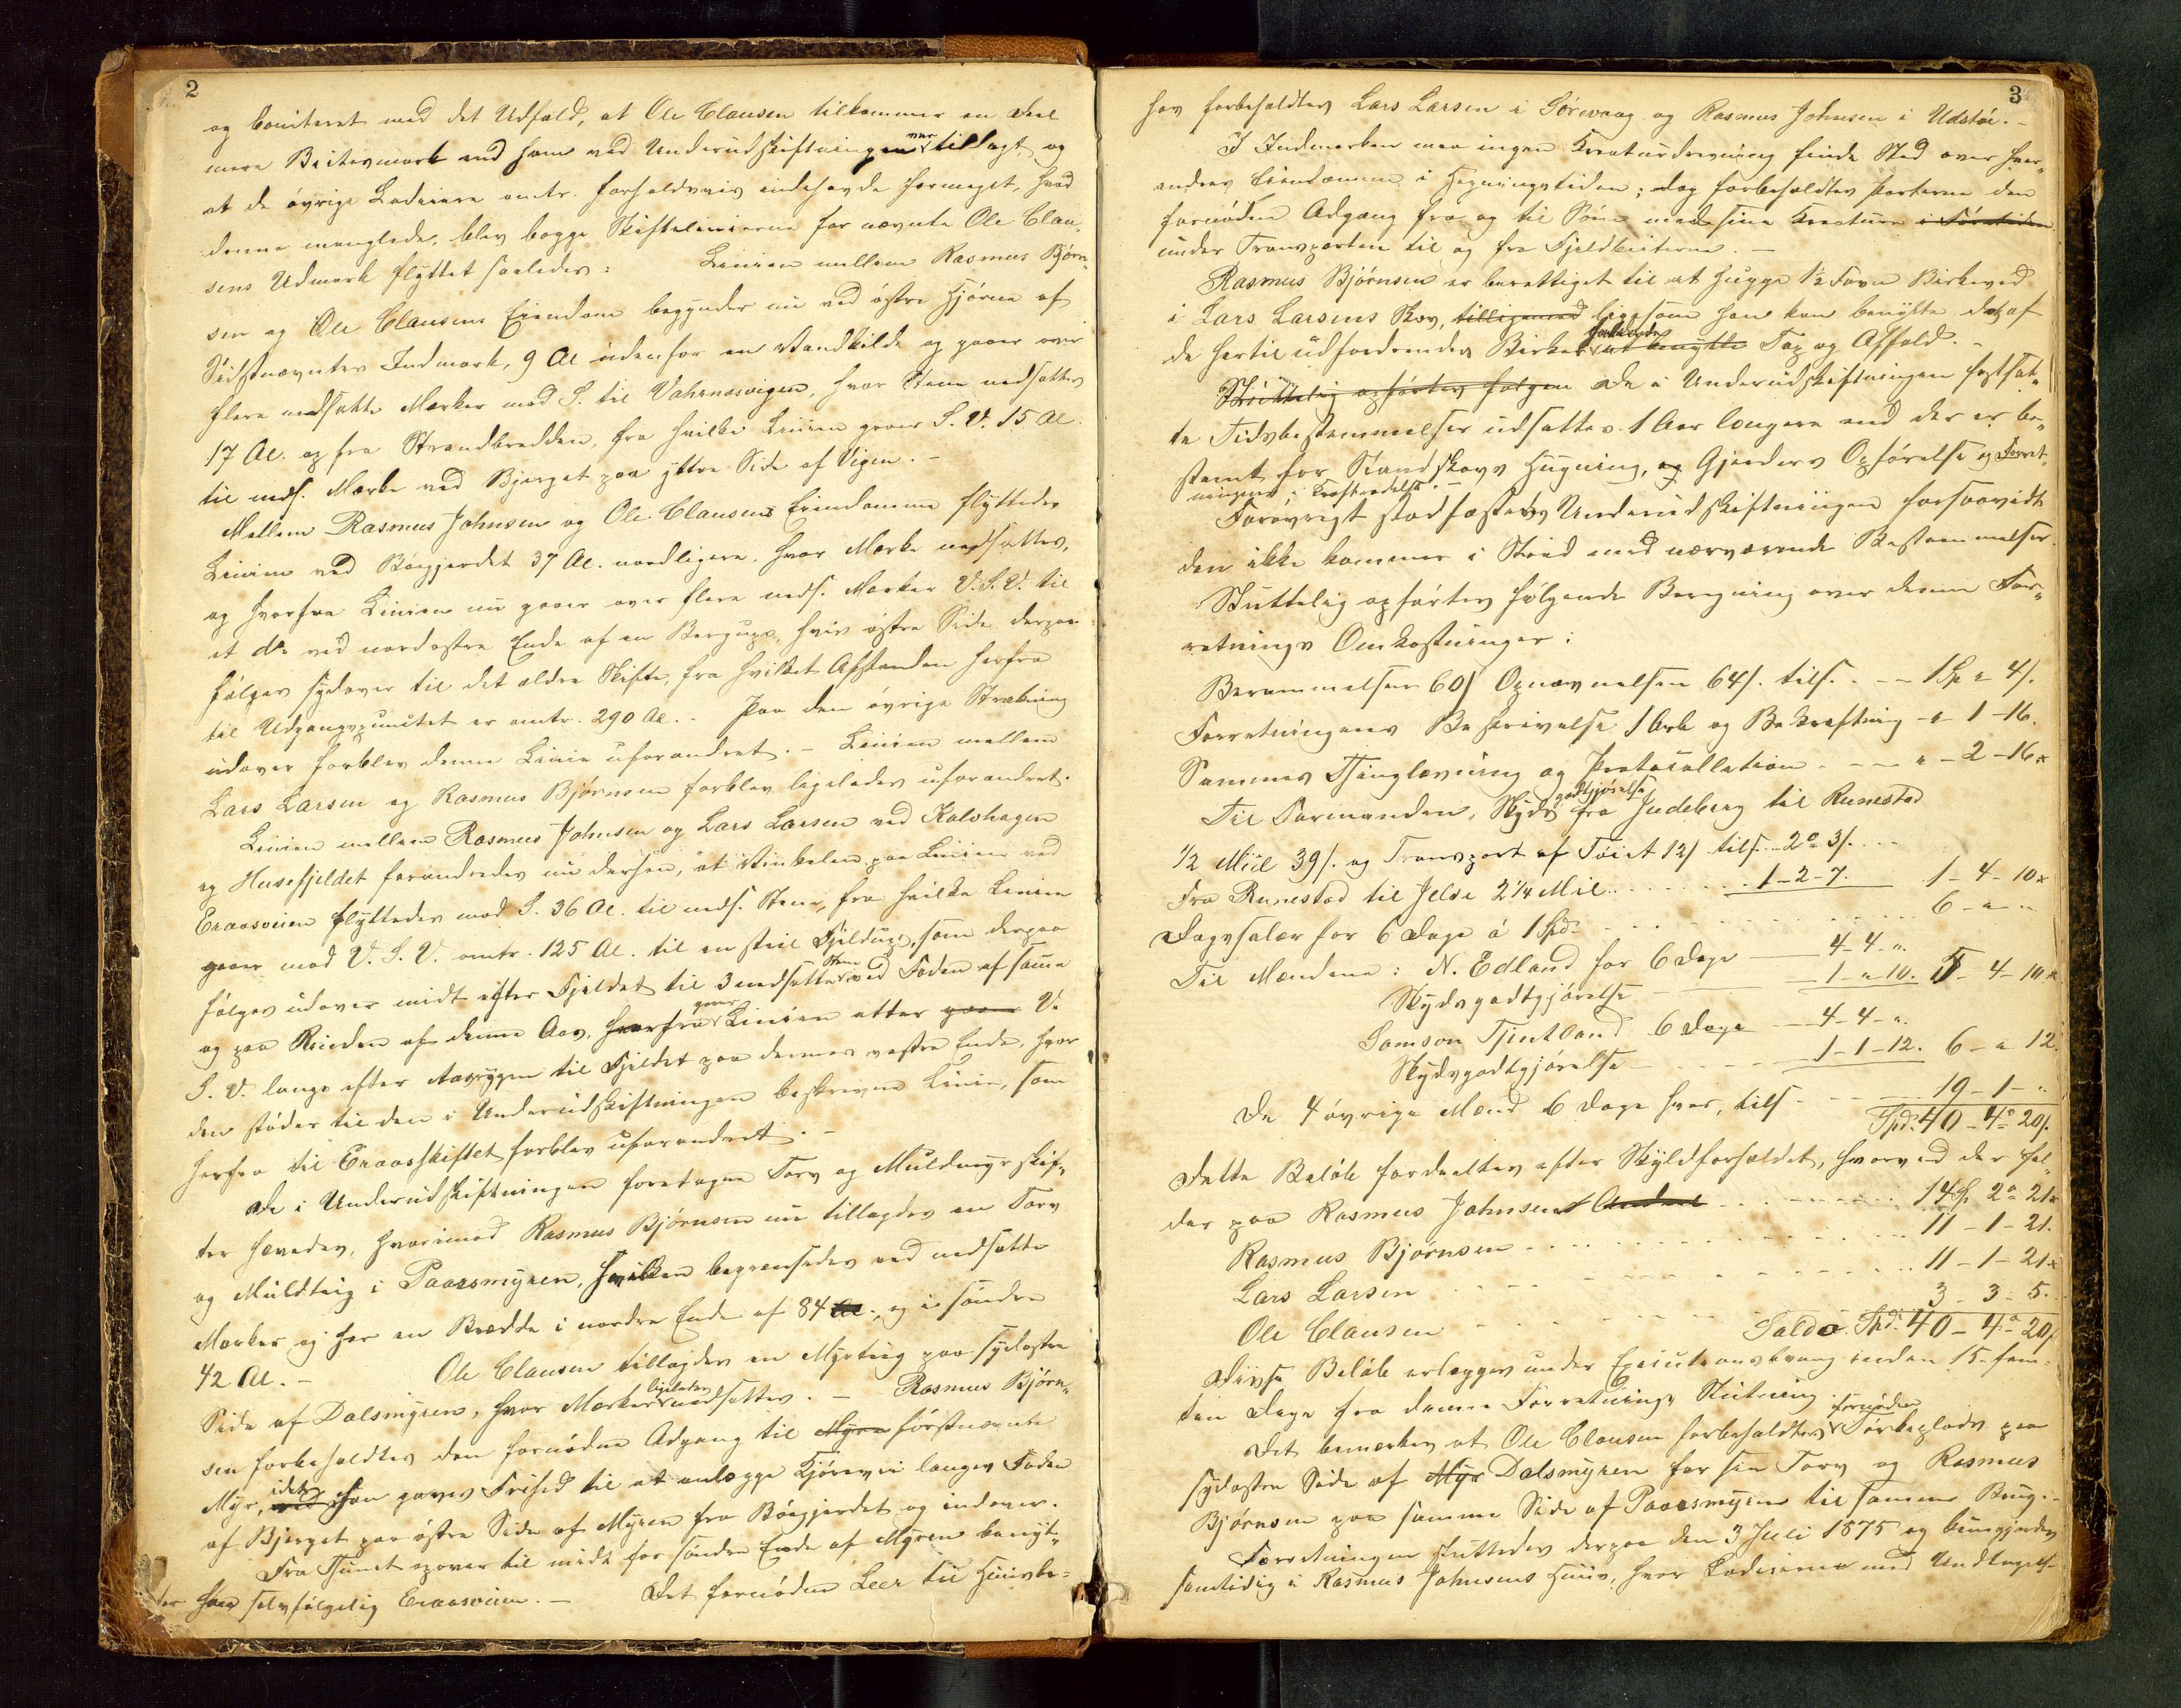 2
og bouiteret med det Udfald, at Ole Clausen tilkommer en Deel
mere Beitesmark end ham ved Underudskiftningen var tillagt, og
at de øvrige Lodeiere omtr. forholdsvis indehavde formeget, hvad
denne manglede, blev begge Skiftelinierne for nævnte Ole Clau-
sens Udmark flyttet saaledes: Linien mellem Rasmus Bjørn-
sen og Ole Clausens Eiendom begynder nu ved østre Hjørne af
Sidstnævntes Indmark, 9 Al. udenfor en Vandkilde og gaaer over
flere nedsatte Mærker mod S. til Vahrnæsvigen, hvor Steen nedsattes
17 Al. op fra Strandbredden, fra hvilke Linien gaaer S.V. 15 Al.
til neds. Mærke ved Bjerget paa yttre Side af Vigen. –
Mellem Rasmus Johnsen og Ole Clausens Eiendomme flyttedes
Linien ved Bøegjerdet 37 Al. nordligere, hvor Mærke nedsattes,
og hvorfra Linien nu gaaer over flere neds. Mærker V.S.V. til
et do ved nordøstre Ende af en Bergups, hvis østre Side derpaa
følges sydover til det ældre Skifte, fra hvilket Afstanden herfra
til Udgangspunktet er omtr. 290 Al. – Paa den øvrige Strækning
udover forblev denne Linie uforandret. – Linien mellem
Lars Larsen og Rasmus Bjørnsen forblev ligeledes uforandret.
Linien mellem Rasmus Johnsen og Lars Larsen ved Kalvhagen
og Husefjeldet forandredes nu derhen, at Vinkelen paa Linien ved
Eraasveien flyttedes mod S. 36 Al. til neds. Steen, fra hvilke Linien
gaaer mod V.S.V. omtr. 125 Al. til en steil Fjeldups, som derpaa
følges udover midt efter Fjeldet til 3 nedsatte Stene ved Foden af samme
og paa Rinden af denne Aas, hvorfra gaaer Linien atter gaaer V.
S.V. langs efter Aasryggen til Fjeldet paa dennes vestre Ende, hvor
den støder til den i Underudskiftningen beskrevne Linie, som
herfra til Eraasskiftet forblev uforandret. –
De i Underudskiftningen foretagne Torv og Muldmyrskif-
ter hævedes, hvorimod Rasmus Bjørnsen nu tillagdes en Torv
og Muldteig i Paarsmyren, hvilken begrænsedes ved nedsatte
Mærker og har en Bredde i nordre Ende af 84 Al., og i søndre
42 Al. – Ole Clausen tillagdes en Myrteig paa sydøstre
Side af Dalsmyren, hvor Mærker ligeledes nedsattes. – Rasmus Bjørn-
sen forbeholdtes den fornødne Adgang til Myren førstnævnte
Myr, ved idet han gaves Frihed til at anlægge Kjørevei langs Foden
af Bjerget paa østre Side af Myren fra Bøegjerdet og indover.
Fra Thunet opover til midt for søndre Ende af Myren benyt-
ter han selvfølgelig Eraasveien. – Det fornødne Leer til Huusbe-
3
hov forbeholdtes Lars Larsen i Sørevaag og Rasmus Johnsen i Udstøe. –
I Indmarken maa ingen Kreaturdrivning finde Sted over hver-
andres Eiendomme i Hegningstiden; dog forbeholdtes Parterne den
fornødne Adgang fra og til Søen med sine Kreature i Søretiden
under Transporten til og fra Fjeldbeiterne. –
Rasmus Bjørnsen er berettiget til at hugge 1/2 Favn Birkeved
i Lars Larsens Skov, tilligemed ligesom han kan benytte det af
de hertil udfordrendes Birker faldende at benytte Top og Affald. –
Skiftelig opførtes følgen De i Underudskiftningen fastsat-
te Tidsbestemmelser udsattes 1 Aar længere end der er be-
stemt for Standskovs Hugning, og Gjerders Opførelse og Forret-
ningens i Krafttrædelse. –
Forøvrigt stadfæstedes Underudskiftningen forsaavidt
den ikke kommer i Strid med nærværende Bestemmelser.
Sluttelig opførtes følgende Beregning over denne For-
retnings Omkostninger:
Berammelsen 60 s Opnævnelsen 64 s. tils. - - 1 Sp " 4 s.
Forretningens Beskrivelse 1 Ark og Bekræftning - " 1 - 16.
Sammes Thinglæsning og Protocollation - - - " - 2 - 16 x
Til Formanden, Skyds godtgjørelse fra Judeberg til Runestad
1/2 Miil 39 s. og Transport af Tøiet 12 s tils. 2 o 3 s. ...
Fra Runestad til Jelse 2 1/4 Mil ..... 1 - 2 - 7. 1 - 4 - 10 x
Dagsalær for 6 Dage á 1 Spd. ..... 6 - " - "
Til Mændene: N. Edland for 6 Dage — 4 - 4 - ".
Skydsgodtgjørelse — 1 - " 10. 5 - 4 - 10 x
Samson Tjentland 6 Dage — 4 - 4 - ".
Skydsgodtgjørelse — 1 - 1 - 12. 6 - " 12.
De 4 øvrige Mænd 6 Dage hver, tils. - - - 19 - 1 - "
Spd. 40 - 4 o 20 s.
Dette Beløb fordeeltes efter Skyldforholdet, hvorved der fal-
der paa Rasmus Johnsen Andeel ..... 14 Sp 2 o 21 x
Rasmus Bjørnsen ..... 11 - 1 - 21.
Lars Larsen ..... 11 - 1 - 21 x
Ole Clausen ..... 3 - 3 - 5.
Saldo. Spd. 40 - 4 o 20 s
Disse Beløb erlægges under Executionstvang inden 15 fem-
ten Dage fra denne Forretnings Slutning.
Det bemærkes at Ole Clausen forbeholdtes fornøden Tørkeplads paa
sydøstre Side af Myr Dalsmyren for sin Torv og Rasmus
Bjørnsen paa samme Side af Paarsmyren til samme Brug. –
Forretningen sluttedes derpaa den 3 Juli 1875 og kungjordes
samtidig i Rasmus Johnsens Huus, hvor Lodeierne med Undtagelse